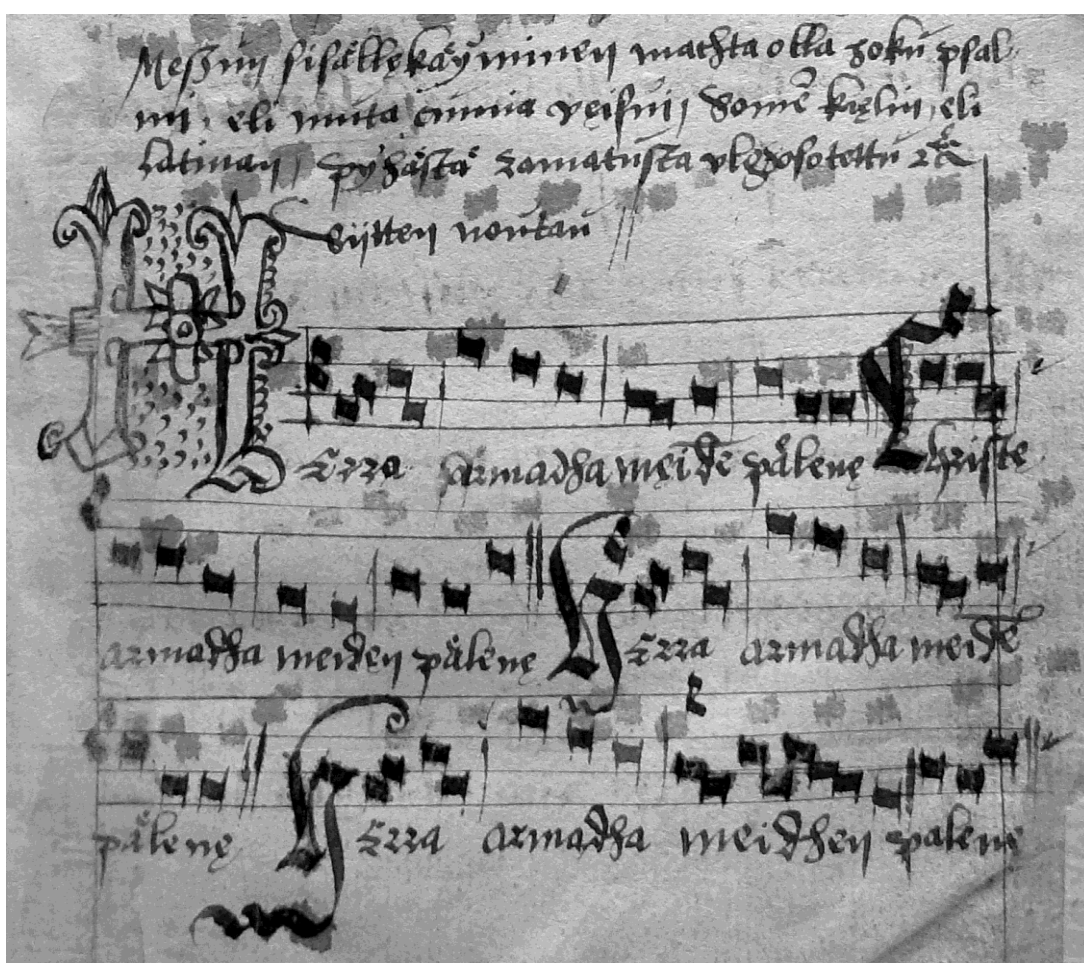 Messun sisällekäyminen machta olla joku psal
mi, eli muta cunnia veisun, Somē kielin, eli
Latinan, pyhästä ramatusta vlgosotettu
Sijtten noutau
HErra armadha meidē pälene Christe
armadha meiden pälene HErra armadha meidē
pälene HErra armadha meidhen palene